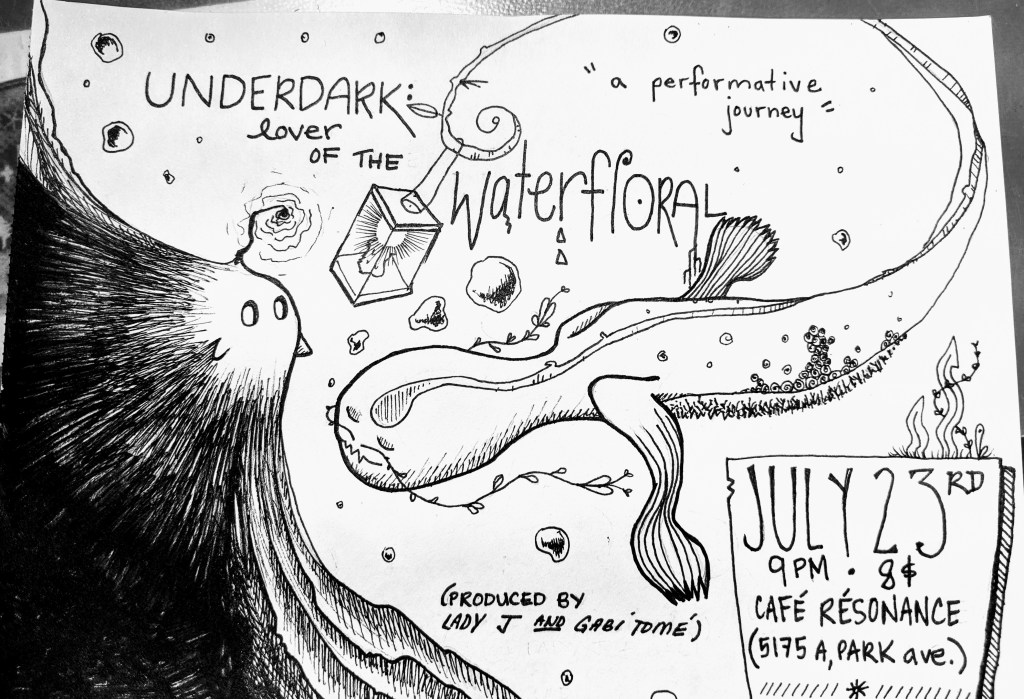 UNDERDARK:
lover
OF THE
waterflORAL
"a performative
journey"
JULY 23RD
9PM • 8$
CAFÉ RÉSONANCE
(5175 A, PARK ave.)
(PRODUCED BY
LADY J AND GABI TOMÉ)